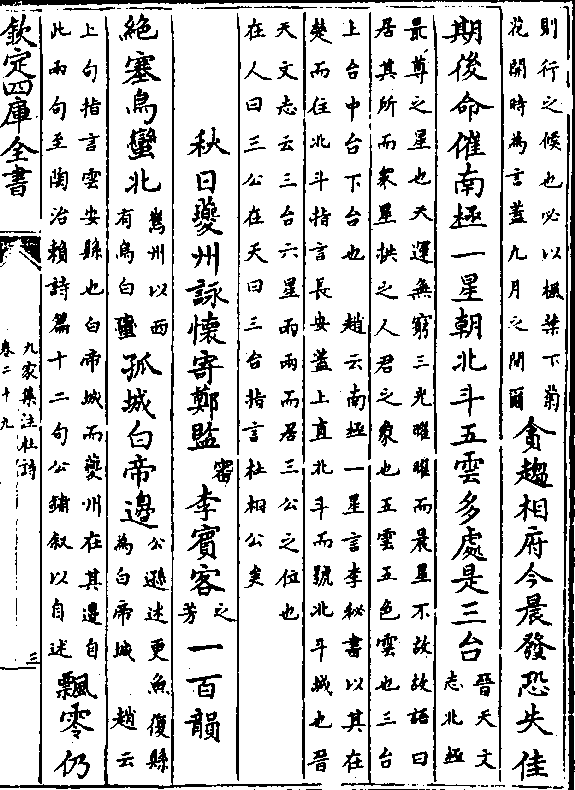 則行之候也必以楓葉下菊
花開時為言葢九月之間爾
貪趨相府今晨發恐失佳
期後命催南極一星朝北斗五雲多處是三台
晉天文
志北極
最尊之星也天運無窮三光曜曜而晨星不故故語曰
居其所而衆星拱之人君之象也五雲五色雲也三台
上台中台下台也　趙云南極一星言李秘書以其在
楚而住北斗指言長安葢上直北斗而號北斗城也晉
天文志云三台六星兩兩而居三公之位也
在人曰三公在天曰三台指言杜相公矣
秋日夔州詠懷寄鄭監審李賓客之芳一百韻
絶塞烏蠻北
嶲州以西
有烏白蠻
孤城白帝邊
公遜述更魚復縣
為白帝城　趙云
上句指言雲安縣也白帝城而夔州在其邊自
此兩句至陶冶賴詩篇十二句公鋪叙以自述
飄零仍
欽定四庫全書
九家集注杜詩
卷二十九
三